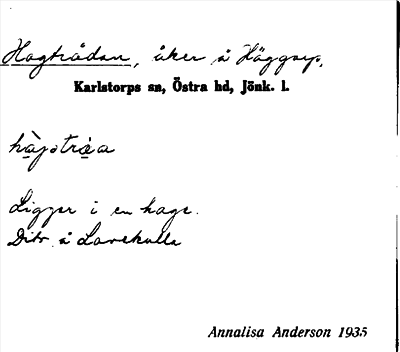 Hagtrådan, åker å Häggarp,
Karlstorps sn, Östra hd, Jönk. l.
Ligger i en hage.
Dito å Lovekulla
Annalisa Anderson 1935